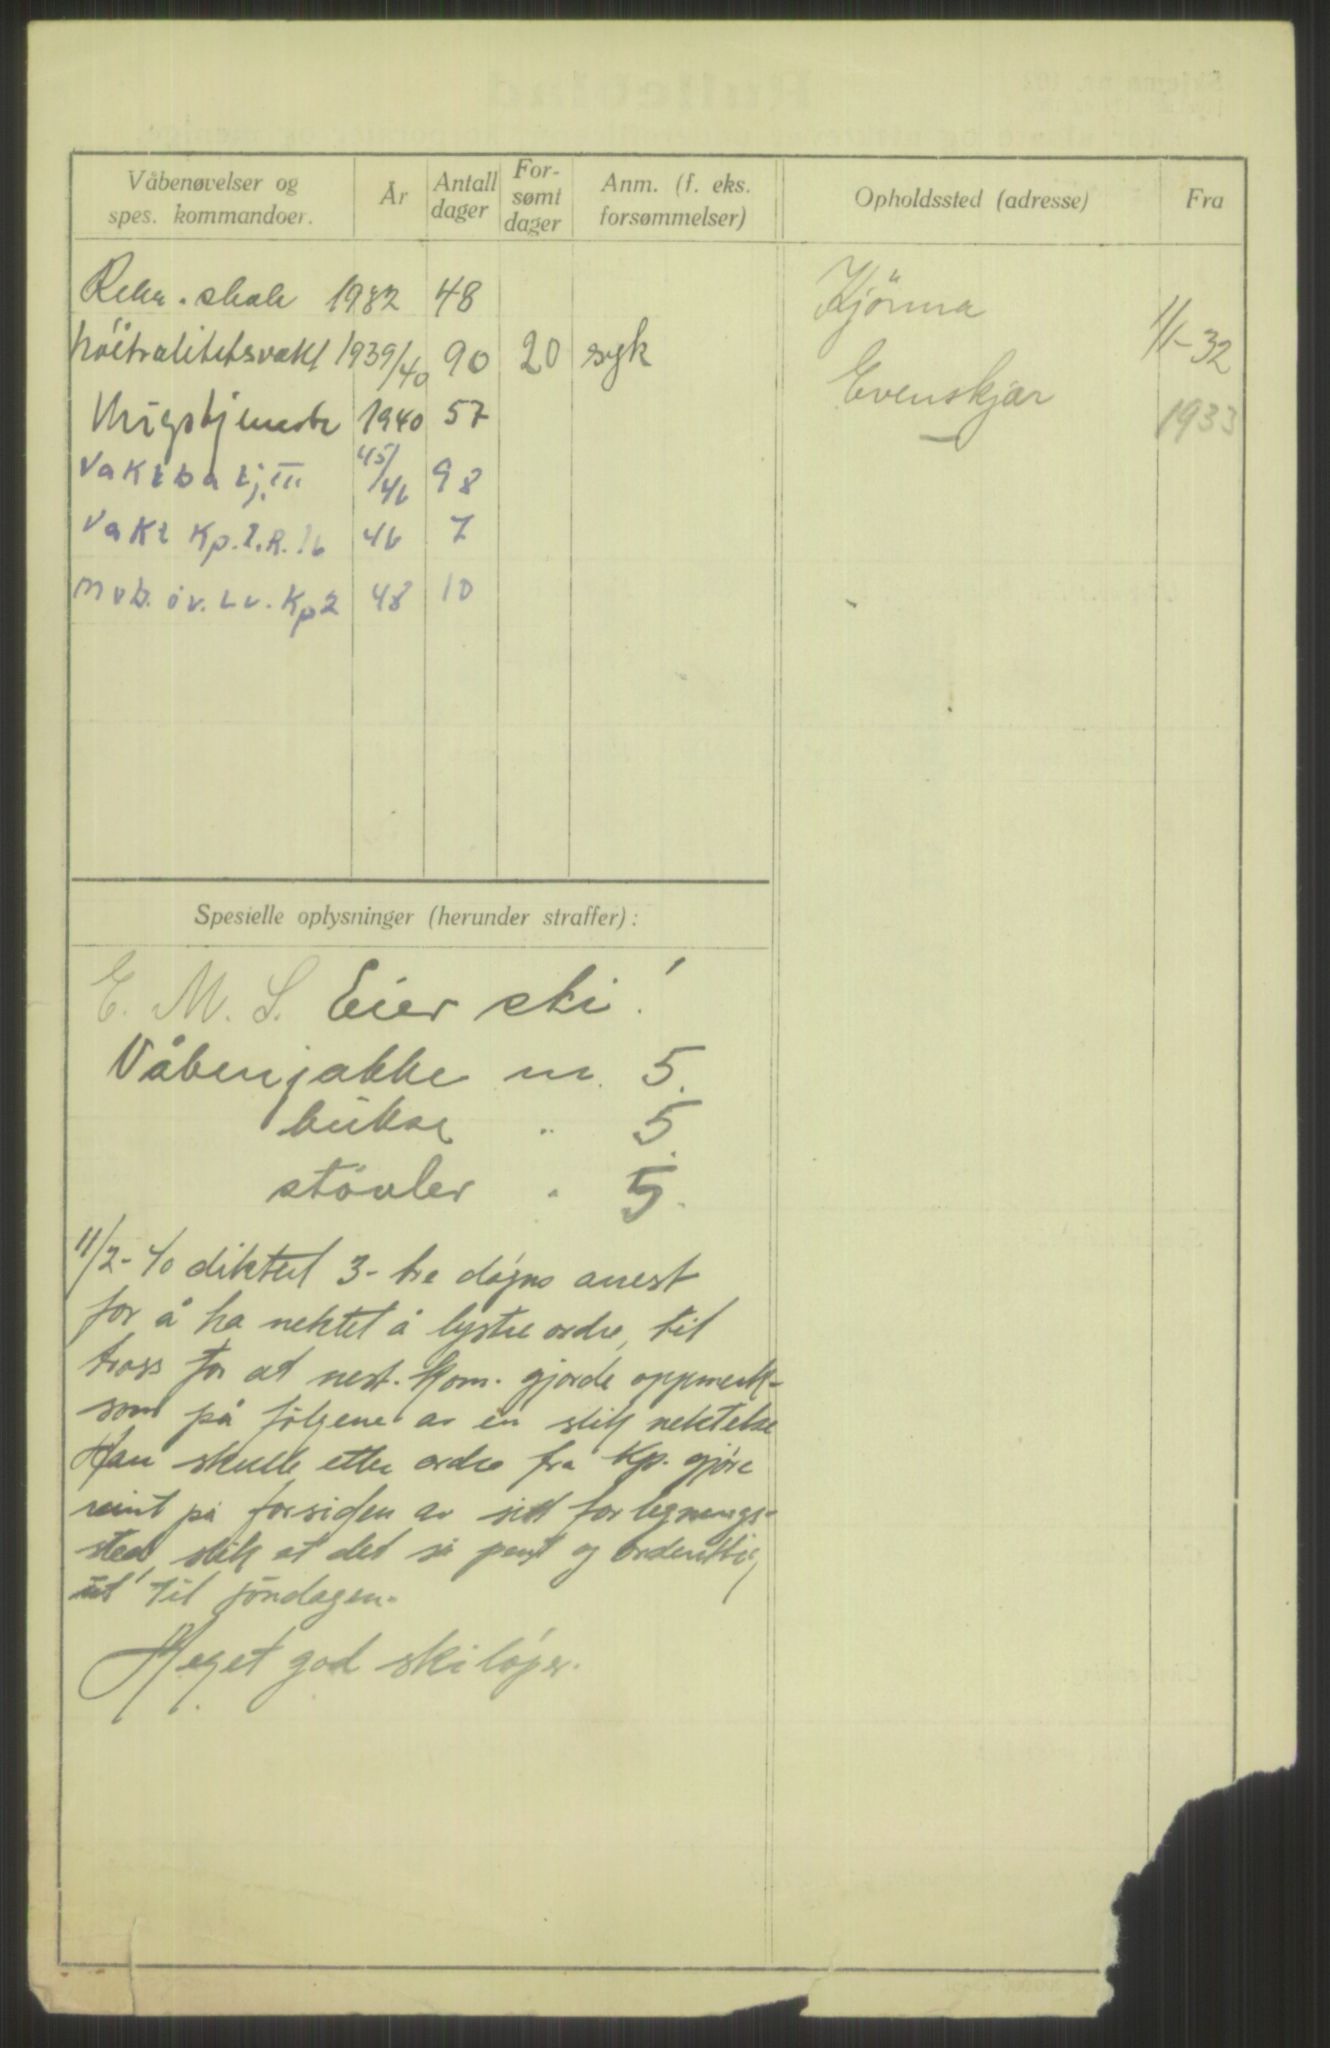 Våbenøvelser og spes. kommandoer. År Antall dager For-sømt dager Anm. (f. eks. forsømmelser) Opholdssted (adresse) Fra
Rekr. skole 1932 48
Nöitralitetsvakt 1939/40 90 20 syk
Krigstjeneste 1940 57
Vaktbatj. III 45/46 98
Vakt Kp. I.R. 16 46 7
Mob. öv. Lv. Kp 2 48 10
Kjönna 1/1-32
Evenskjær 1933
Spesielle oplysninger (herunder straffer):
E. M. S. Eier ski!
Våbenjakke nr. 5.
bukse " 5.
stövler " 5.
11/2-40 diktert 3- tre døgns arrest
for å ha nektet å lystre ordre, til
tross for at nest. kom. gjorde oppmerk-
som på følgene av en slik nektelse
Han skulle etter ordre fra Kp. gjøre
reint på forsiden av sitt forlegnings-
sted, slik at det så pent og ordentlig
ut til söndagen.
Meget god skiløper.